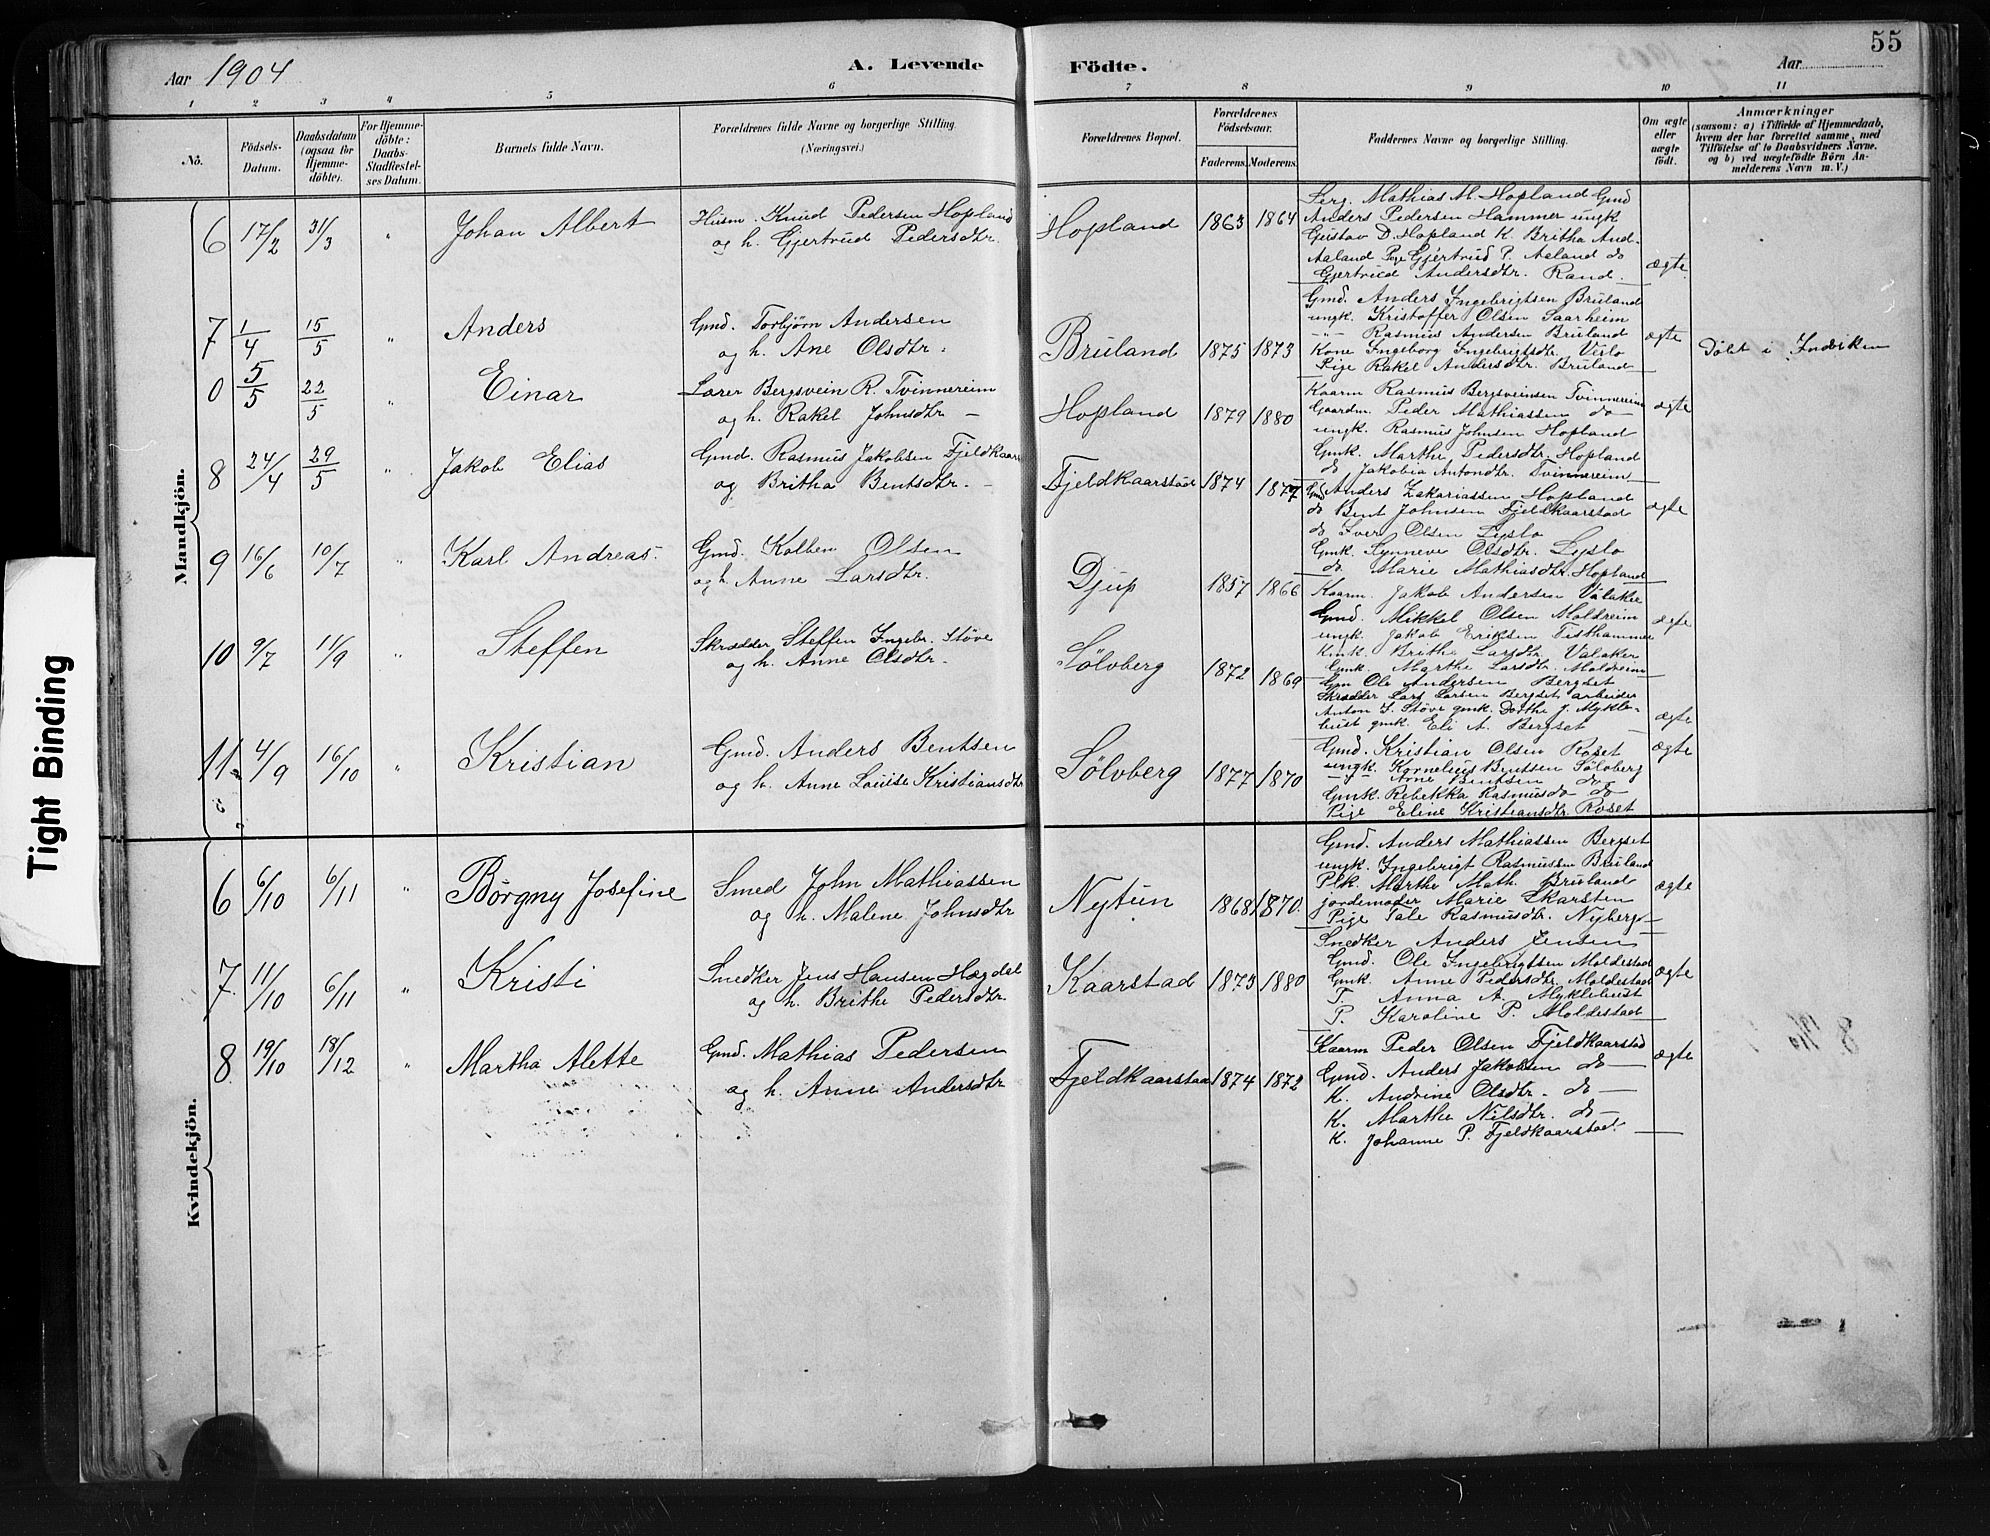 55
Aar 1904
A. Levende Födte.
Aar
1 2 3 4 5 6 7 8 9 10 11
No.
Födsels-Datum.
Daabsdatum (ogsaa for Hjemme-döbte).
For Hjemme-döbte: Daabs-Stadfæstel-ses Datum.
Barnets fulde Navn.
Forældrenes fulde Navne og borgerlige Stilling (Næringsvei.)
Forældrenes Bopæl.
Forældrenes Födselsaar.
Faderens. Moderens.
Faddernes Navne og borgerlige Stilling.
Om ægte eller uægte födt.
Anmærkninger
(saasom: a) i Tilfælde af Hjemmedaab, hvem der har forrettet samme, med Tilföielse af to Daabsvidners Navne. og b) ved uægtefödte Börn An-melderens Navn m. V.)
Mandkjön.
6 17/2 31/3 " Johan Albert
Husm. Knud Pedersen Hopland
og h. Gjertrud Pedersdtr.
Hopland 1863 1864
Serg. Mathias M. Hopland Gmd
Anders Pedersen Hammer ungk
Gustav D. Hopland K. Britha And.
Aaland Pige Gjertrud P. Aaland do
Gjertrud Andersdtr. Rand.
ægte
7 1/4 15/5 " Anders
Gmd. Torbjørn Andersen
og h. Ane Olsdtr.
Bruland 1875 1873
Gmd. Anders Ingebrigtsen Bruland
ungk. Kristoffer Olsen Saarheim
-"- Rasmus Andersen Bruland
Kone Ingeborg Ingebrigtsdtr. Vislo
Pige Rakel Andersdtr. Bruland
ægte
Døbt i Indviken
0 5/5 22/5 " Einar
Lærer Bergsvein R. Tvinnereim
og h. Rakel Johnsdtr -
Hopland 1879 1880
Kaarm Rasmus Bergsveinsen Tvinnereim
Gaardm. Peder Mathiassen do
ungk. Rasmus Johnsen Hopland
Gmk. Marthe Pedersdtr. Hopland
do Jakobia Antondtr. Tvinnereim
ægte
8 24/4 29/5 " Jakob Elias
Gmd. Rasmus Jakobsen Fjeldkaars
og Britha Bentsdtr. -
Fjeldkaarstad 1874 1877
Gmd Anders Zakariassen Hopland
do Bent Johnsen Fjeldkaarstad
do Iver Olsen Lyslo
Gmk. Synneve Olsdtr. Lyslo
do. Marie Mathiasdtr. Hopland
ægte
9 16/6 10/7 " Karl Andreas.
Gmd. Kolben Olsen
og h. Anne Larsdtr.
Djup 1857 1866
Kaarm. Jakob Andersen Valaker
Gmd. Mikkel Olsen Moldreim
ungk. Jakob Eriksen Tisthammer
Kmk. Brithe Larsdtr. Valaker
Gmk. Marthe Larsdtr. Moldreim
ægte
10 9/7 11/9 " Steffen
Skrædder Steffen Ingebr. Støve
og h. Anne Olsdtr.
Sölvberg 1872 1869
Gm Ole Andersen Bergset
Skrædder Lars Larsen Bergset arbeider
Anton S. Støve gmk. Dorthe J. Mykle-
bust gmk. Eli A. Bergset
ægte
11 4/9 16/10 " Kristian
Gmd. Anders Bentsen
og h. Anne Louise Kristiansdtr
Sölvberg 1877 1870
Gmd. Kristian Olsen Roset
ungk. Kornelius Bentsen Sölvberg
-"- Arne Bentsen do
Gmk. Rebekka Rasmusdo do
Pige Eline Kristiansdtr. Roset
ægte
Kvindekjön.
6 6/10 6/11 " Borgny Josefine
Smed John Mathiassen
og h. Malene Johnsdtr
Nytun 1868 1870.
Gmd. Anders Mathiassen Bergset
ungk. Ingebrigt Rasmussen Bruland
Pk. Marthe Math. Bruland
jordemoder Marie Skarsten
Pige Tale Rasmusdtr. Nyberg
ægte
7 11/10 6/11 " Kristi
Snedker Jens Hansen Hægdal
og h. Brithe Pedersdtr.
Kaarstad 1873 1880
Snedker Anders Jensen
Gmd. Ole Ingebrigtsen Moldestad
Gmk. Anne Pedersdtr. Moldestad
T. Anna A. Myklebust
P. Karoline P. Moldestad
ægte
8 19/10 18/12 " Martha Alette
Gmd. Mathias Pedersen
og h. Anne Andersdtr
Fjeldkaarstad 1874 1872
Kaarm Peder Olsen Fjeldkaarstad
Gmd. Anders Jakobsen do
K. Andrine Olsdtr. do
K. Marthe Nilsdtr. do
K. Johanne P. Fjeldkaarstad.
ægte
Tight Binding